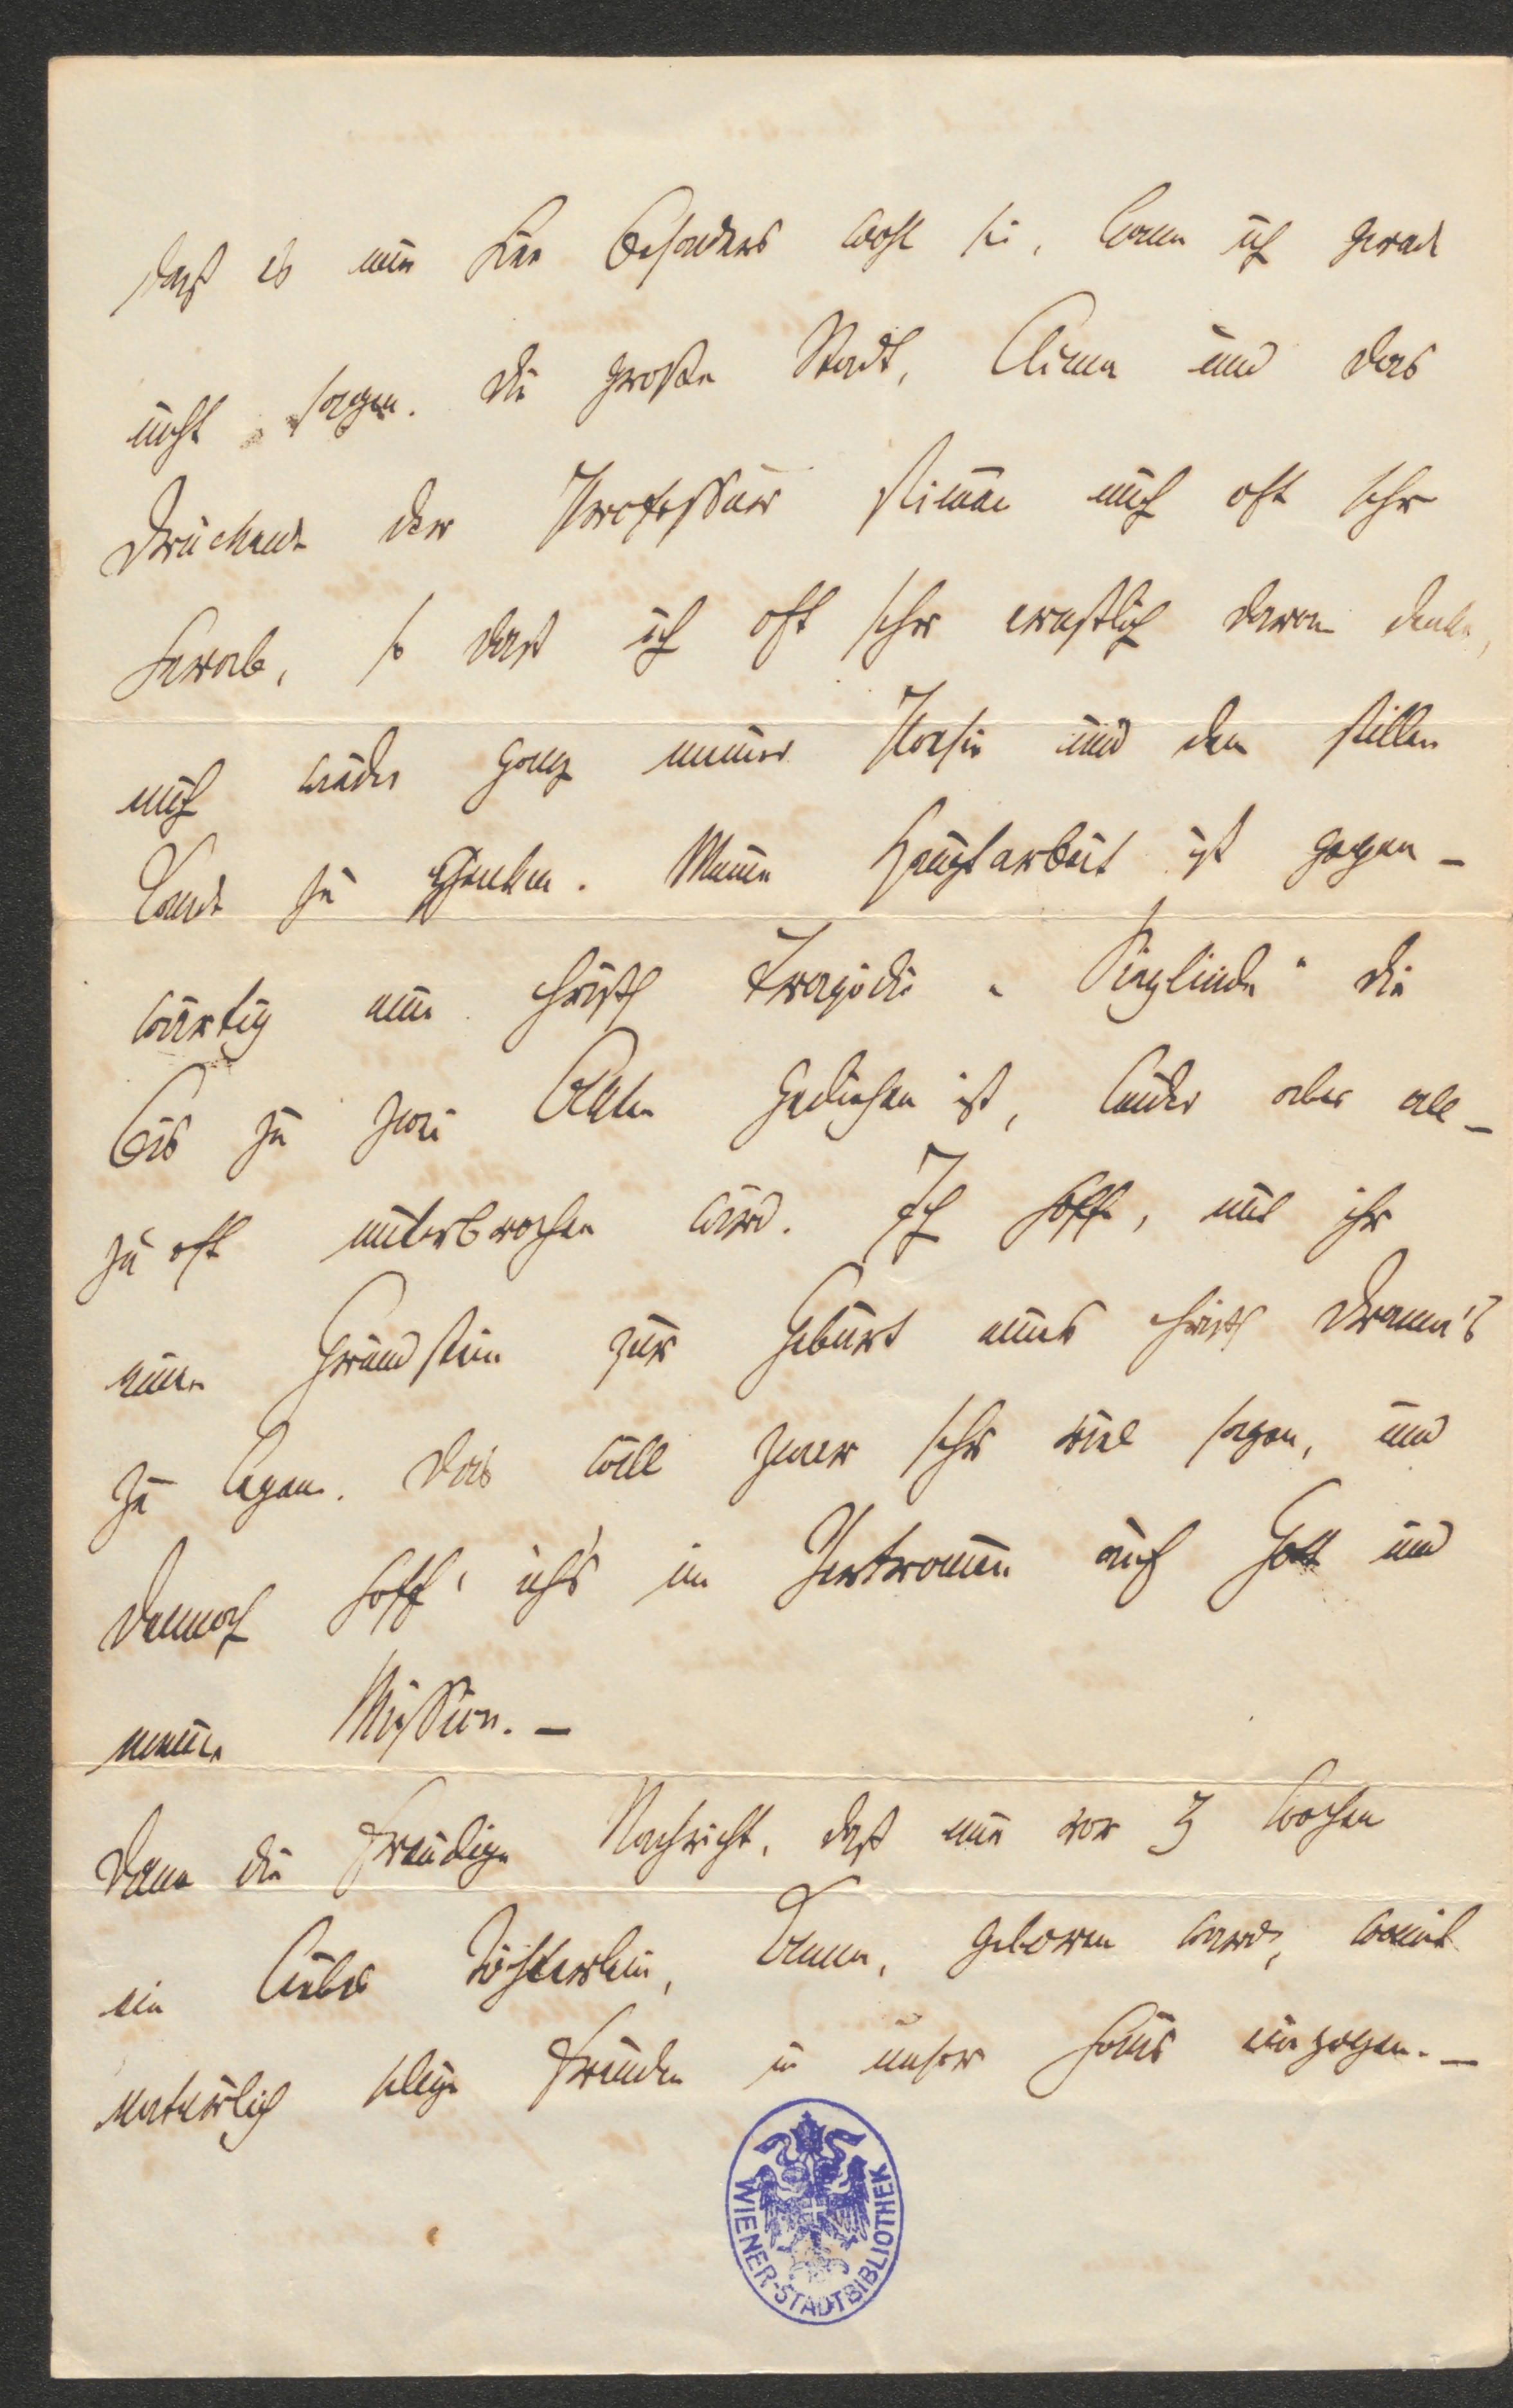 daß es mir hier besonders wohl sei, kann ich gerade
nicht sagen. Die große Stadt, Clima und das
Drückende der Professur stimmen mich oft sehr
herab, so daß ich oft sehr ernstlich daran denke,
mich wieder ganz meiner Poesie und dem stillen
Lande zu schenken. Meine Hauptarbeit ist gegen-
wärtig eine christl Tragödie „Sieglinde" die
bis zu zwei Akten gediehen ist, leider aber all-
zu oft unterbrochen wird. Ich hoffe, mit ihr
einen Grundstein zur Geburt eines christl Drama's
zu legen. Das will zwar sehr viel sagen, und
dennoch hoff' ich's im Vertrauen auf Gott und
meine Mission. —
Dann die freudige Nachricht, daß mir vor 3 Wochen
ein liebes Töchterlein, Emma, geboren ward, womit
natürlich selige Freuden in unser Haus einzogen. —
WIENER-STADTBIBLIOTHEK